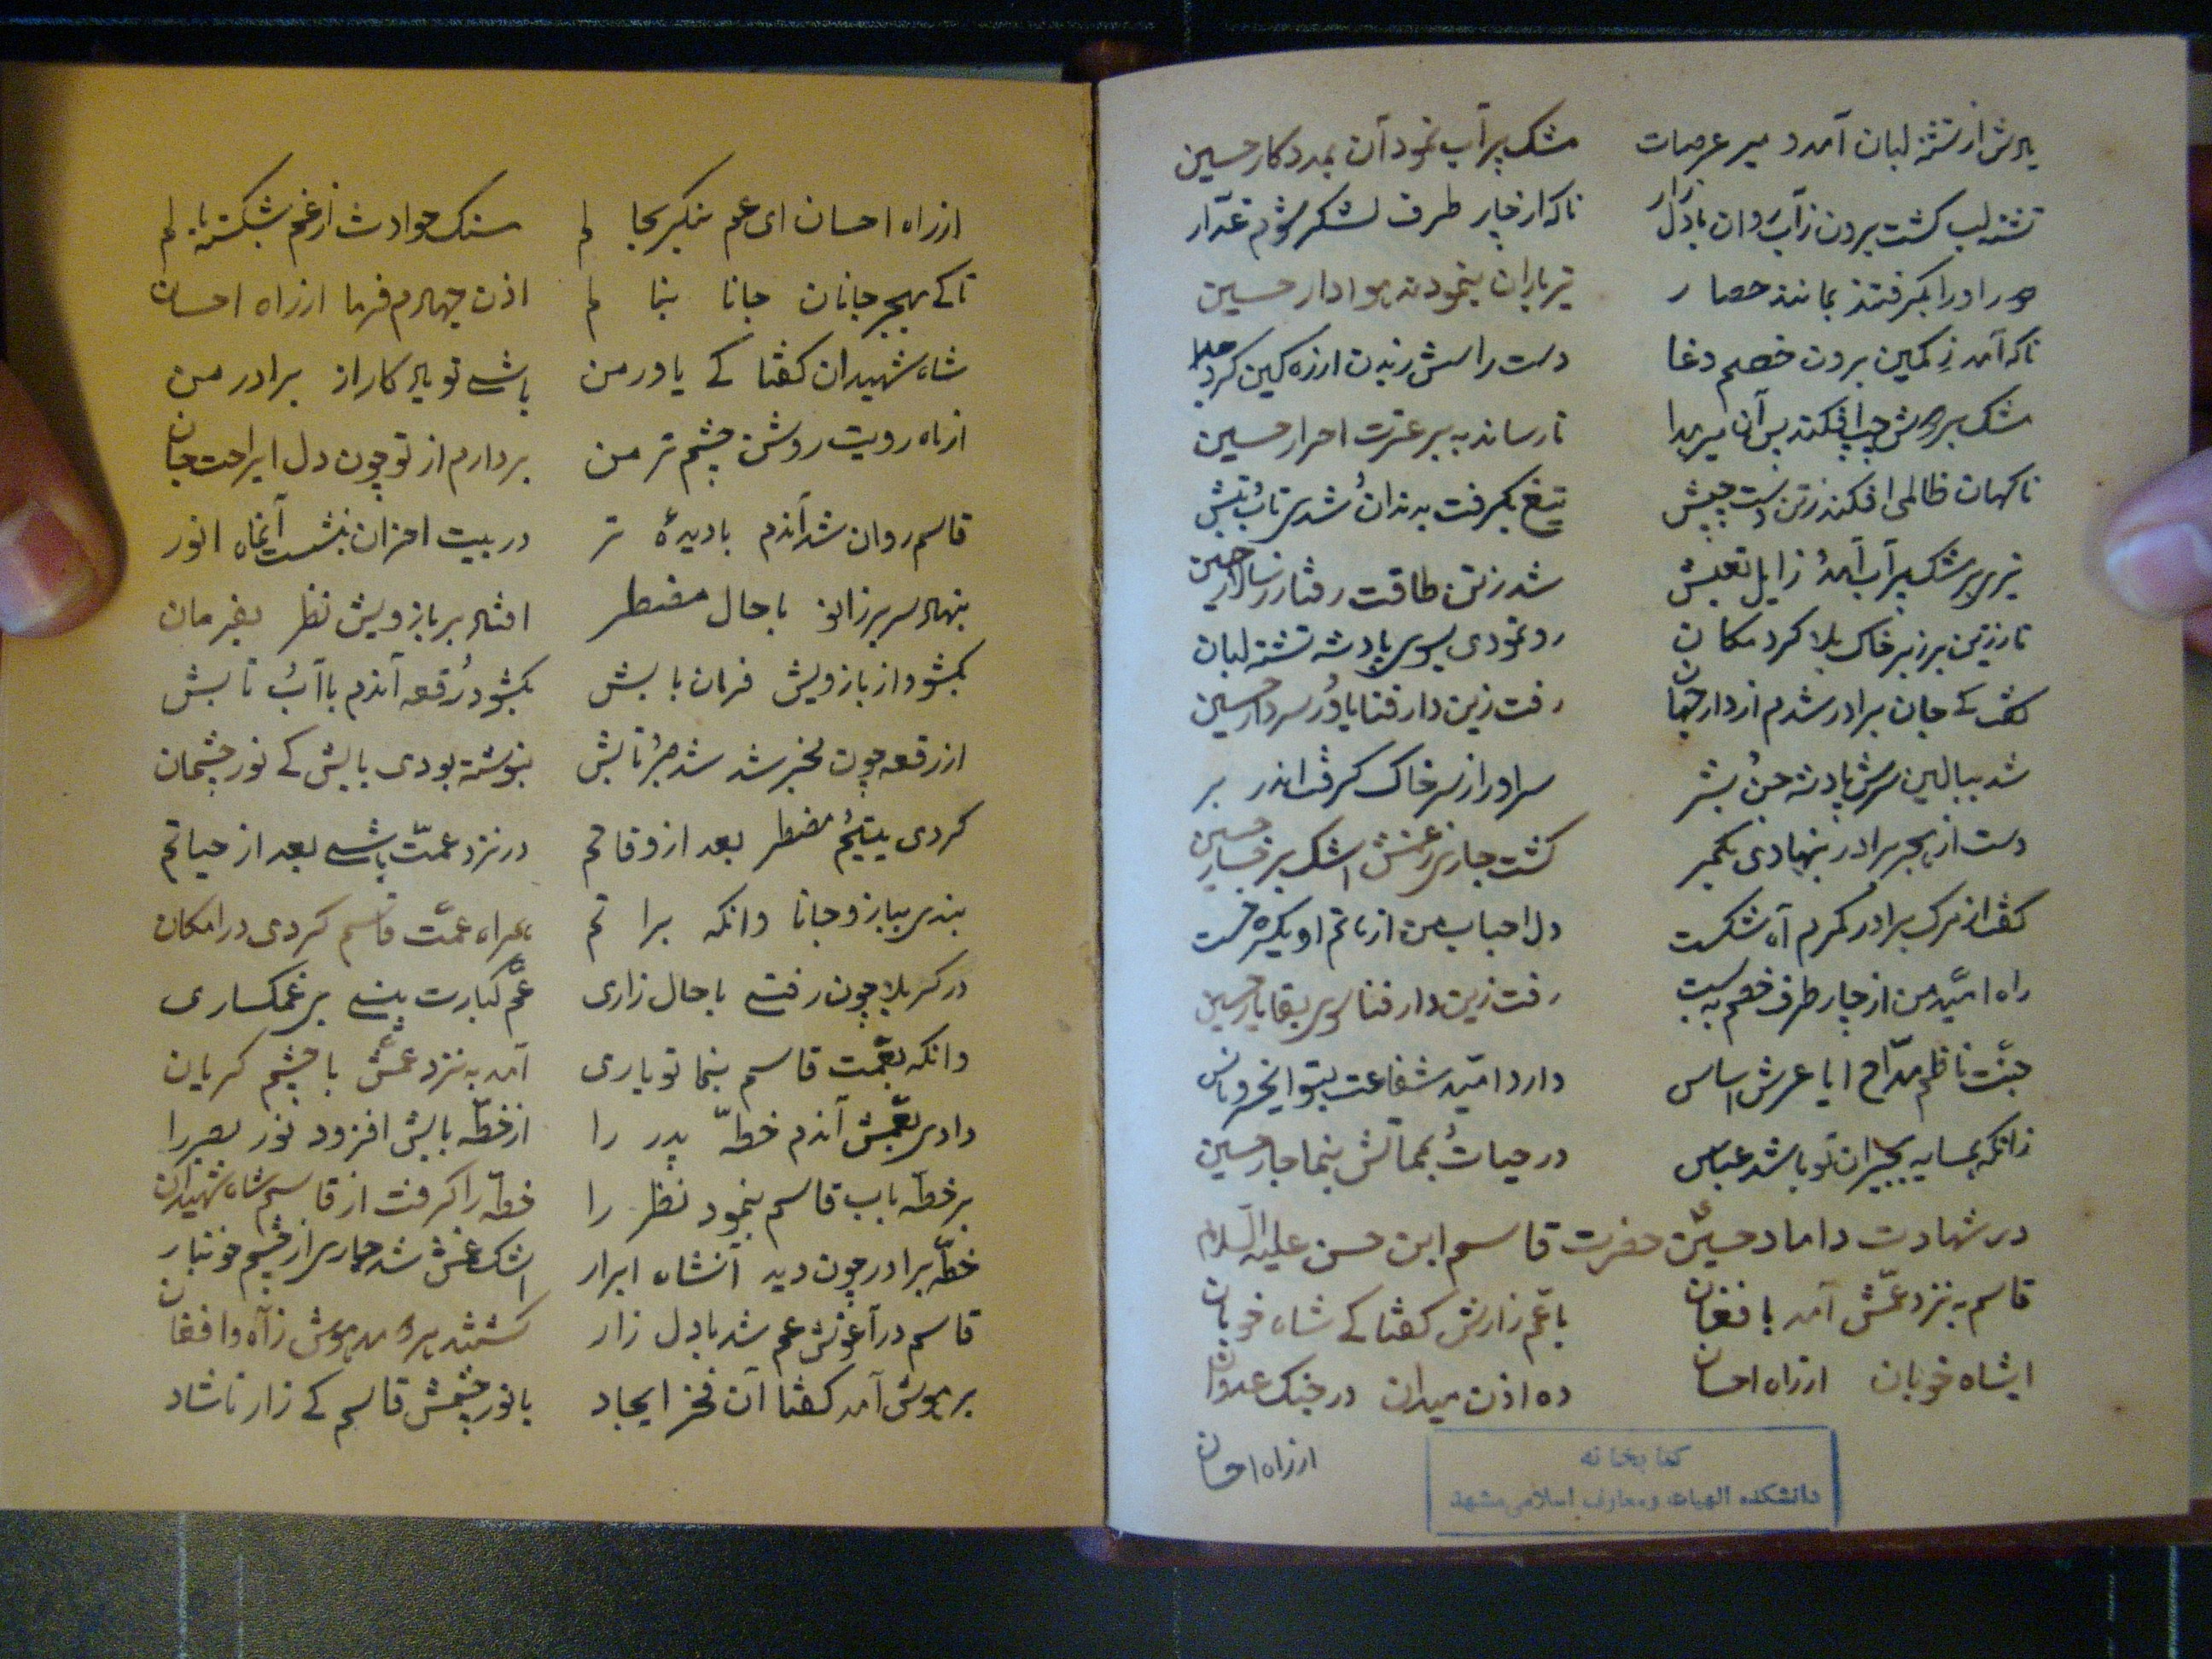 یادش از تشنه لبان آمد و میر عرصات مشک پر آب نمود آن بمددکار حسین
تشنه لب کشت برون زآب روان با دل زار ناکه از چار طرف لشکر شوم غدّار
دور او را بکرفتند بمانند حصار تیرباران بنمودند هوادار حسین
ناکه آمد ز کمین برون خصم دغا دست راستش ز بدن از ره کین کرد جدا
مشک بر دوش چپ افکند پس آن میر هدا تا رساند به بر عترت احرار حسین
ناکهان ظالمی افکند ز تن دست چپش تیغ بکرفت بدندان و شدی تاب و تبش
تیری بر مشک پر آب آمد و زایل تعبش شد ز تن طاقت رفتار ز سالار حسین
تا ز زین بر زبر خاک بلا کرد مکان رو نمودی بسوی پادشه تشنه لبان
کفت کے جان برادر شدم از دار جهان رفت زین دار فنا یاور و سردار حسین
شد ببالین سرش پادشه جن و بشر سر او را ز سر خاک کرفت اندر بر
دست از هجر برادر بنهادی بکمر کشت جاری ز غمش اشک بر خسار حسین
کفت از مرک برادر کمرم آه شکست دل احباب من از ماتم او یکسره خست
راه امّید من از چار طرف خصم به بست رفت زین دار فنا سوی بقا یار حسین
جنّت ناظم مدّاح ایا عرش اساس دارد امّید شفاعت بتو ایخسرو ناس
زانکه همسایه بجیران تو باشد عباس در حیات و بمماتش بنما جار حسین
در شهادت داماد حسین حضرت قاسم ابن حسن علیه السّلام
قاسم به نزد عمّش آمد با فغان با عمّ زارش کفتا کے شاه خوبان
ایشاه خوبان از راه احسان ده اذن میدان در جنک عدوان
از راه احسان
کتابخانه
دانشکده الهیات و معارف اسلامی مشهد
از راه احسان ای عم بنکر بحالم سنک حوادث از غم بشکسته بالم
تا کے بهجر جانان جانا بنالم اذن جهادم فرما از راه احسان
شاه شهیدان کفتا کے یاور من باشے تو یادکار از برادر من
از ماه رویت روشن چشم تر من بردارم از تو چون دل ایراحت جان
قاسم روان شد آندم با دیدهٔ تر در بیت احزان بنشست آنماه انور
بنهاد سر بر زانو با حال مضطر افتاد بر بازویش نظر بفرمان
بکشود از بازویش فرمان بابش بکشود رقعه آندم با آب و تابش
از رقعه چون مخبر شد شد صبر و تابش بنوشته بودی بابش کے نور چشمان
کردی یتیم و مضطر بعد از وفاتم در نزد عمّت باشے بعد از حیاتم
بندی ببازو جانا وانکه براتم همراه عمّت قاسم کردی در امکان
در کربلا چون رفتے با حال زاری عمّ کبارت بینے بر غمکساری
وانکه بعمّت قاسم بنما تو یاری آمد به نزد عمّش با چشم کریان
دادی بعمّش آندم خطّ پدر را از خطّه بابش افزود نور بصر را
بر خطّه باب قاسم بنمود نظر را خطّه را کرفت از قاسم شاه شهیدان
خطّ برادر چون دید آنشاه ابرار اشک غمش شد جاری از چشم خونبار
قاسم در آغوش عم شد با دل زار کشتند هر دو مدهوش ز آه و افغان
بر هوش آمد کفتا آن فخر ایجاد با نور چشمش قاسم کے زار ناشاد